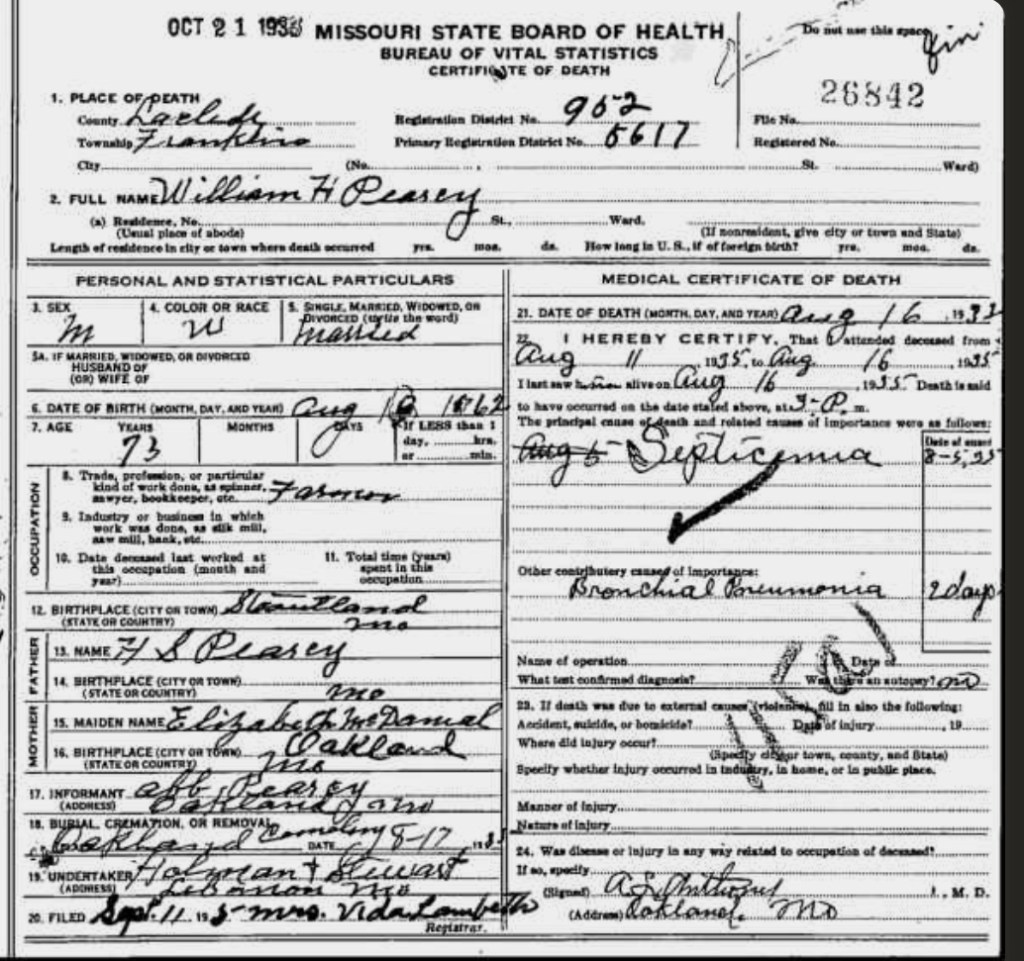 OCT 21 1935 MISSOURI STATE BOARD OF HEALTH
BUREAU OF VITAL STATISTICS
CERTIFICATE OF DEATH
Do not use this space.
26842
1. PLACE OF DEATH
County Laclede Registration District No. 952 File No.
Township Franklin Primary Registration District No. 5617 Registered No.
City (No. , St. Ward)
2. FULL NAME William H Pearcy
(a) Residence, No. St., Ward.
(Usual place of abode) (If nonresident, give city or town and State)
Length of residence in city or town where death occurred yrs. mos. ds. How long in U. S., if of foreign birth? yrs. mos. ds.
PERSONAL AND STATISTICAL PARTICULARS
3. SEX 4. COLOR OR RACE 5. SINGLE, MARRIED, WIDOWED, OR
DIVORCED (write the word)
M W Married
5A. IF MARRIED, WIDOWED, OR DIVORCED
HUSBAND OF
(OR) WIFE OF
6. DATE OF BIRTH (MONTH, DAY, AND YEAR) Aug 1862
7. AGE YEARS MONTHS DAYS If LESS than 1
day, hrs.
73 0 or min.
OCCUPATION
8. Trade, profession, or particular
kind of work done, as spinner,
sawyer, bookkeeper, etc. Farmer
9. Industry or business in which
work was done, as silk mill,
saw mill, bank, etc.
10. Date deceased last worked at
this occupation (month and
year)
11. Total time (years)
spent in this
occupation
12. BIRTHPLACE (CITY OR TOWN) Stoutland
(STATE OR COUNTRY) Mo
FATHER
13. NAME H S Pearcy
14. BIRTHPLACE (CITY OR TOWN)
(STATE OR COUNTRY) Mo
MOTHER
15. MAIDEN NAME Elizabeth McDanial
16. BIRTHPLACE (CITY OR TOWN) Oakland
(STATE OR COUNTRY) Mo
17. INFORMANT Abb Pearcy
(ADDRESS) Oakland Mo
18. BURIAL, CREMATION, OR REMOVAL
Oakland Cemetery DATE 8-17 1935
19. UNDERTAKER Holman & Stewart
(ADDRESS) Lebanon Mo
20. FILED Sept. 11 1935 Mrs. Vida Lambeth
Registrar.
MEDICAL CERTIFICATE OF DEATH
21. DATE OF DEATH (MONTH, DAY, AND YEAR) Aug 16, 193
22. I HEREBY CERTIFY, That I attended deceased from
Aug 11 1935, to Aug 16, 1935
I last saw him alive on Aug 16, 1935 Death is said
to have occurred on the date stated above, at 3-P. m.
The principal cause of death and related causes of importance were as follows:
Date of onset
Aug 5 Septicemia 8-5,35
Other contributory causes of importance:
Bronchial Pneumonia 2 days
Name of operation Date of
What test confirmed diagnosis? Was there an autopsy? no
23. If death was due to external causes (violence), fill in also the following:
Accident, suicide, or homicide? Date of injury , 19
Where did injury occur?
(Specify city or town, county, and State)
Specify whether injury occurred in industry, in home, or in public place.
Manner of injury
Nature of injury
24. Was disease or injury in any way related to occupation of deceased?
If so, specify
(Signed) , M. D.
(Address) Oakland, Mo